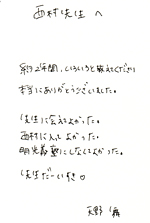 西村先生へ
約2年間、いろいろと教えてくださり
本当にありがとうございました。
先生に会えてよかった。
西村に入ってよかった。
明光義塾にしなくてよかった。
先生だーいすき♡
天野